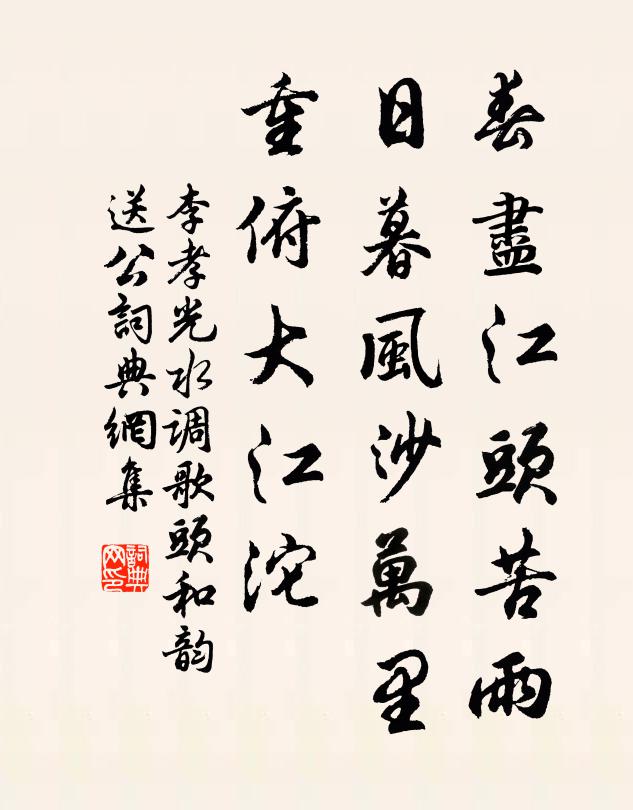 春盡江頭苦雨
日暮風沙萬里
重俯大江沱
李孝光水调歌頭和韵
送公詞典網集
詞典网印